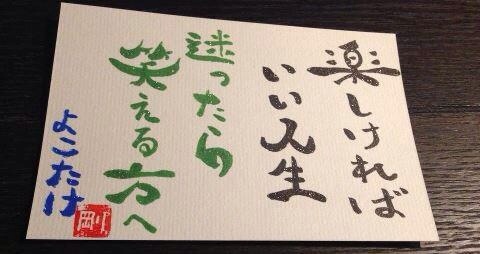 楽しければ
いい人生
迷ったら
笑える方へ
よこたけ
剛